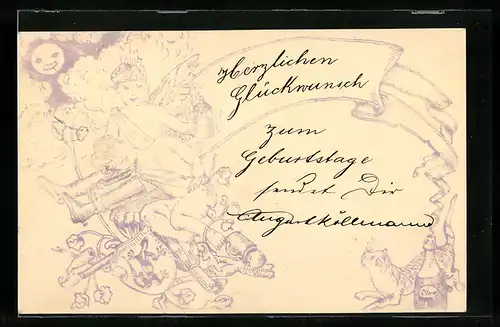 Herzlichen
Glückwunsch
zum
Geburtstage
sendet Dir
August Köllmann